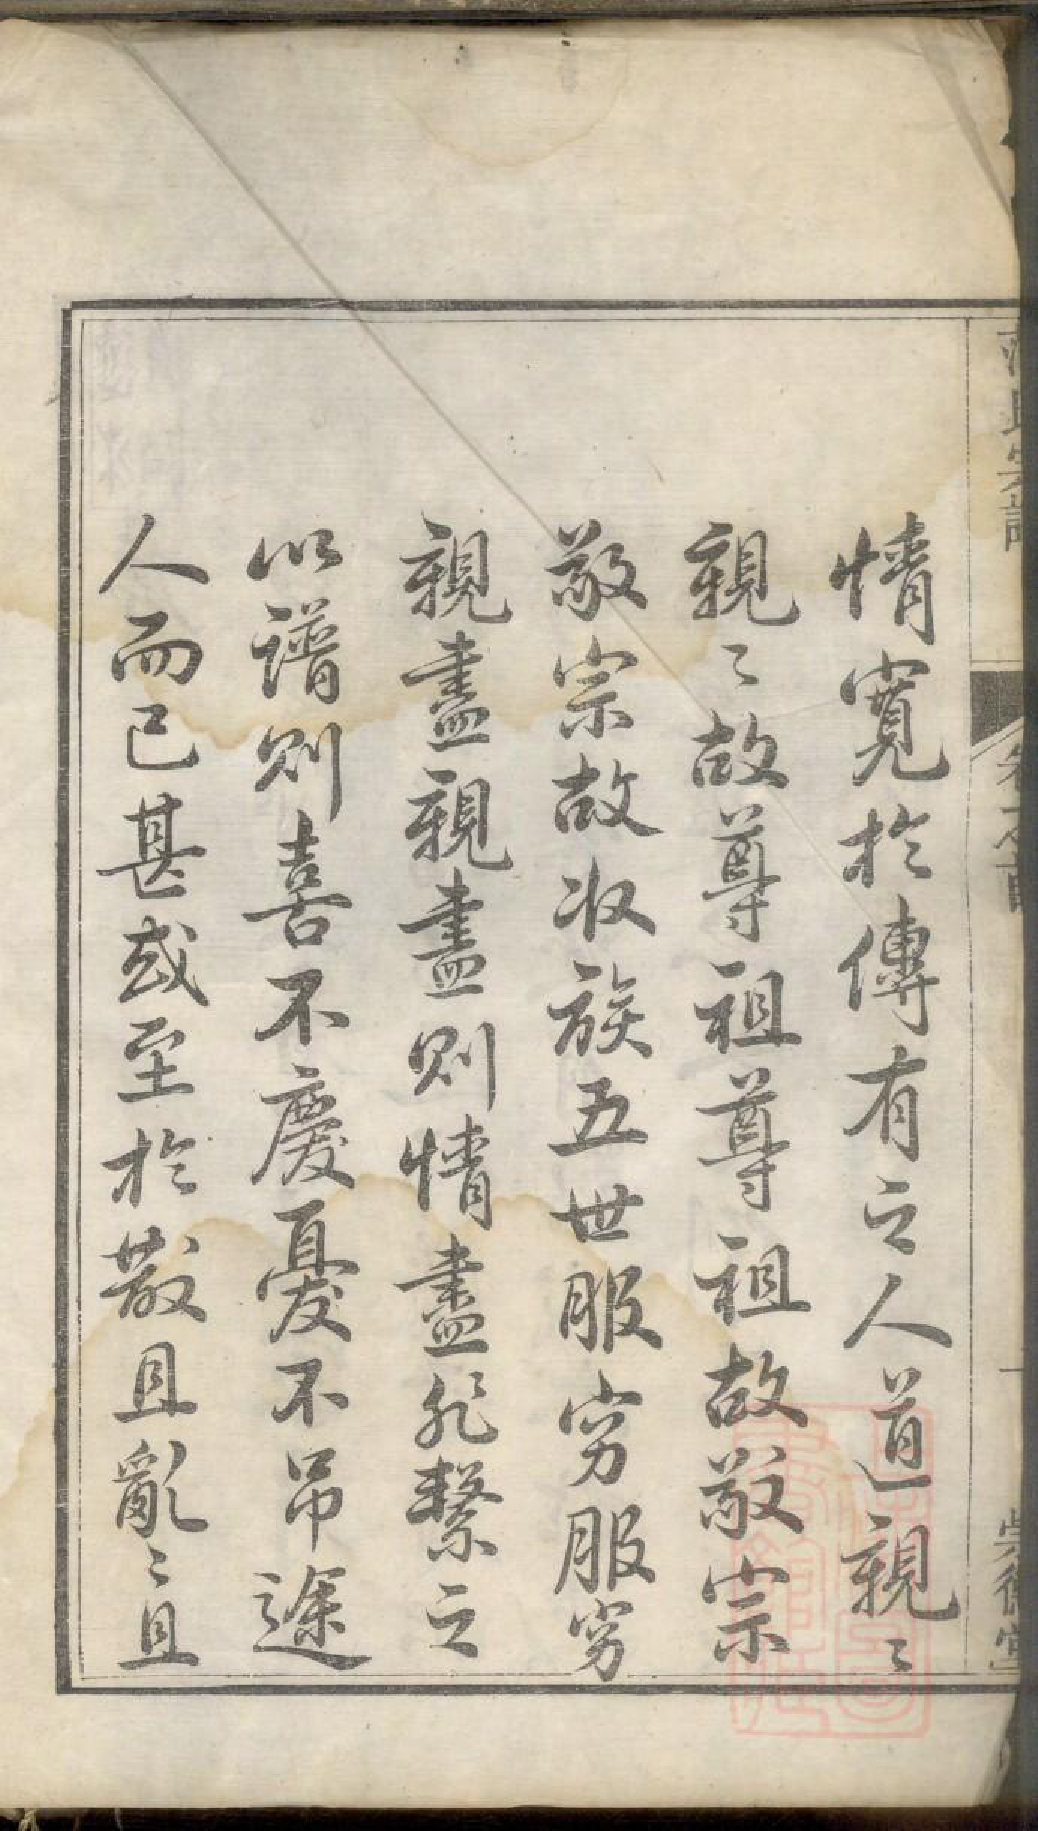 情寬於傳有之人道親〻
親〻故尊祖尊祖故敬宗
敬宗故收族五世服穷服穷
親盡親盡則情盡非繫之
以譜則喜不慶憂不吊途
人而已甚或至於散且亂〻且